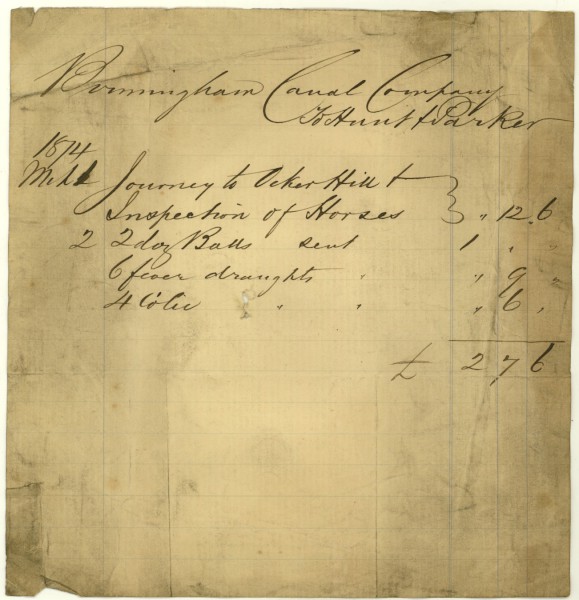 Birmingham Canal Company
To Hunt & Parker
1874
Mch 1 Journey to Ocker Hill &
Inspection of Horses } " 12 . 6
2 2 doz Balls sent 1 " "
6 fever draughts " " 9
4 Colic " " " 6 "
£ 2 , 7 6